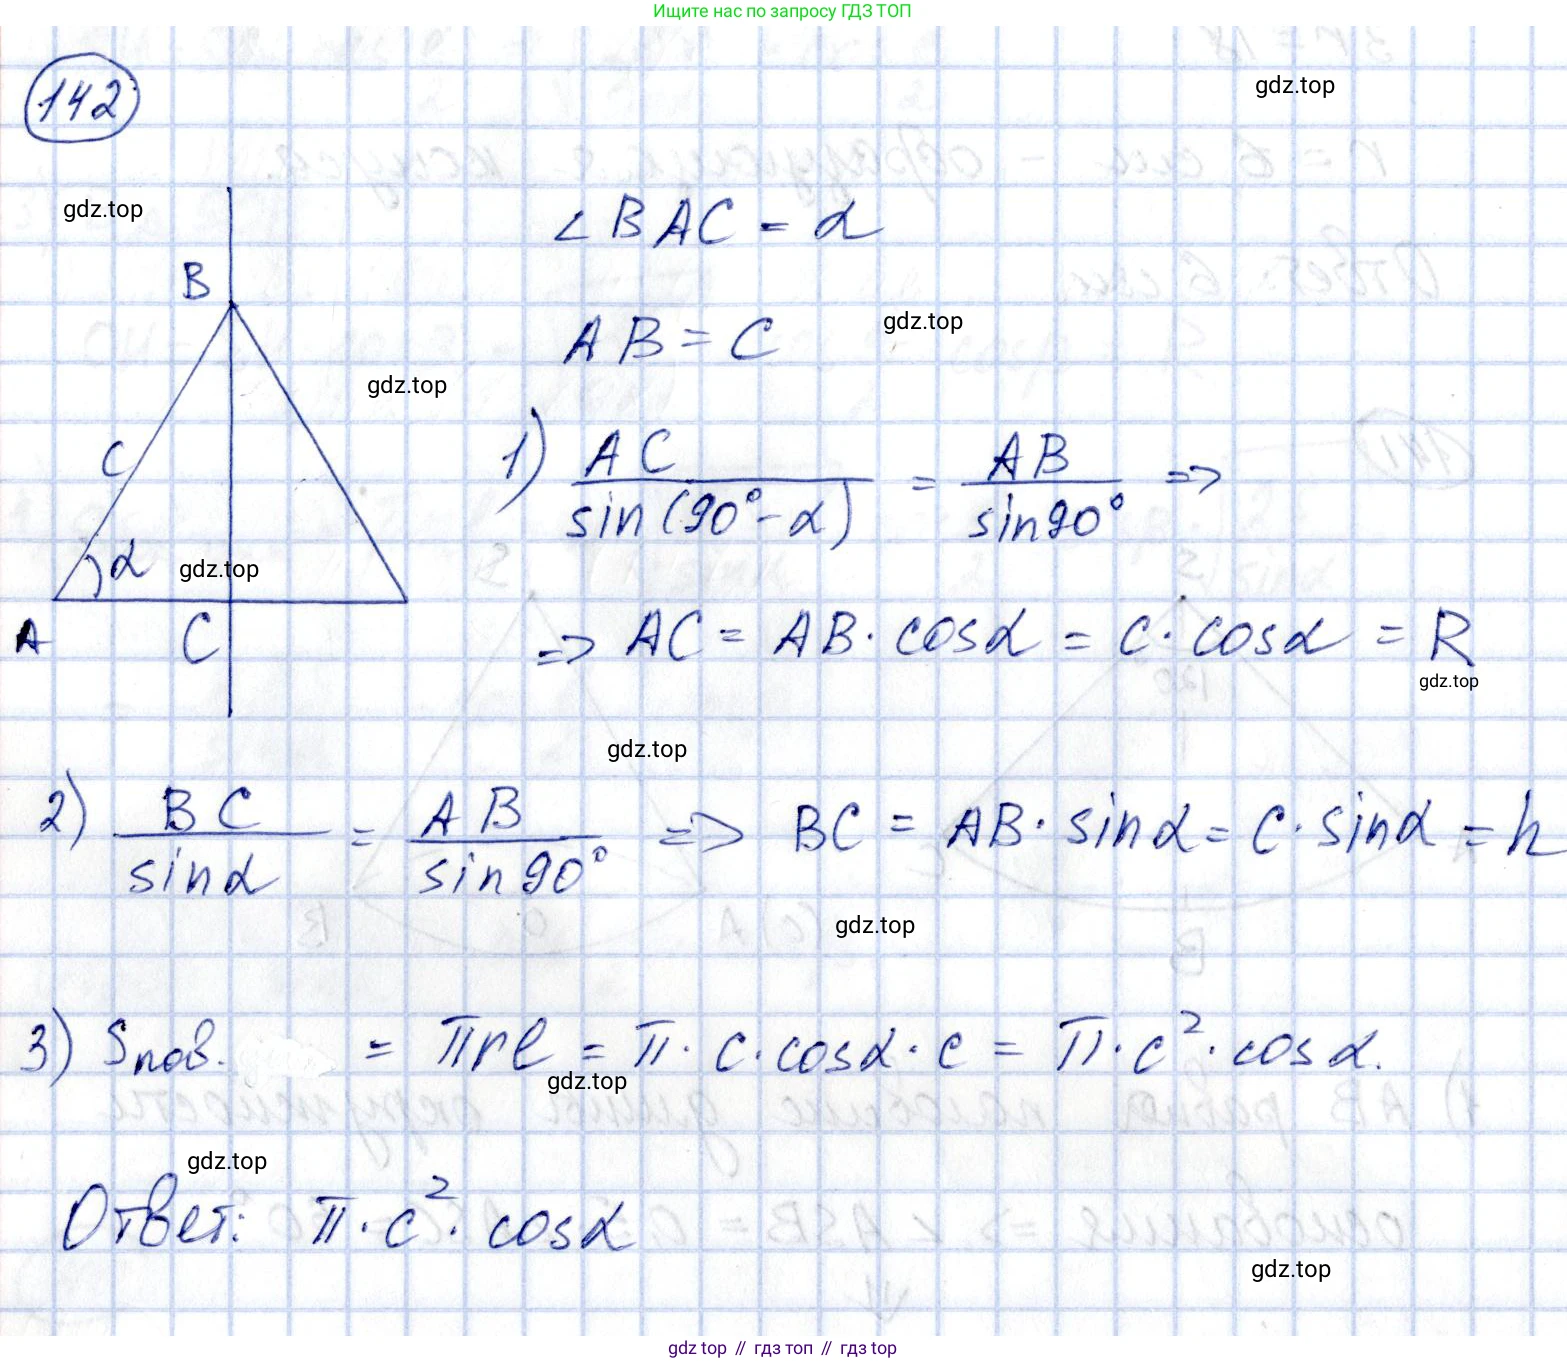 Ищите нас по запросу ГДЗ ТОП
142
gdz.top
gdz.top
∠BAC = α
B
AB = C
gdz.top
gdz.top
C
1) AC / sin(90°-α) = AB / sin90° =>
α
gdz.top
A
C
=> AC = AB · cosα = c · cosα = R
gdz.top
gdz.top
2) BC / sinα = AB / sin90° => BC = AB · sinα = C · sinα = h
gdz.top
3) Sпов. = πrl = π · c · cosα · c = π · c² · cosα.
gdz.top
gdz.top
Ответ: π · c² · cosα
gdz.top
gdz.top // гдз топ // гдз.top